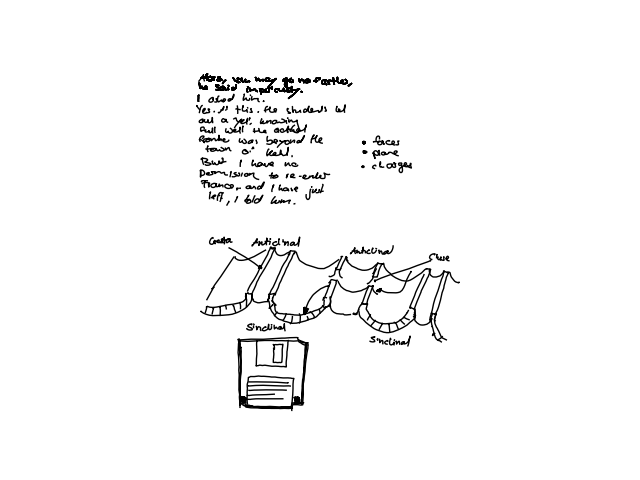 Here, you may go no farther,
he said imperiously.
I asked him.
Yes. At this, the students let
out a yell, knowing
full well the actual
border was beyond the
town of Kehl.
But I have no
permission to re-enter
France, and I have just
left, I told him.
• faces
• plane
• charges
Cresta Anticlinal Anticlinal Cluse
Sinclinal Sinclinal